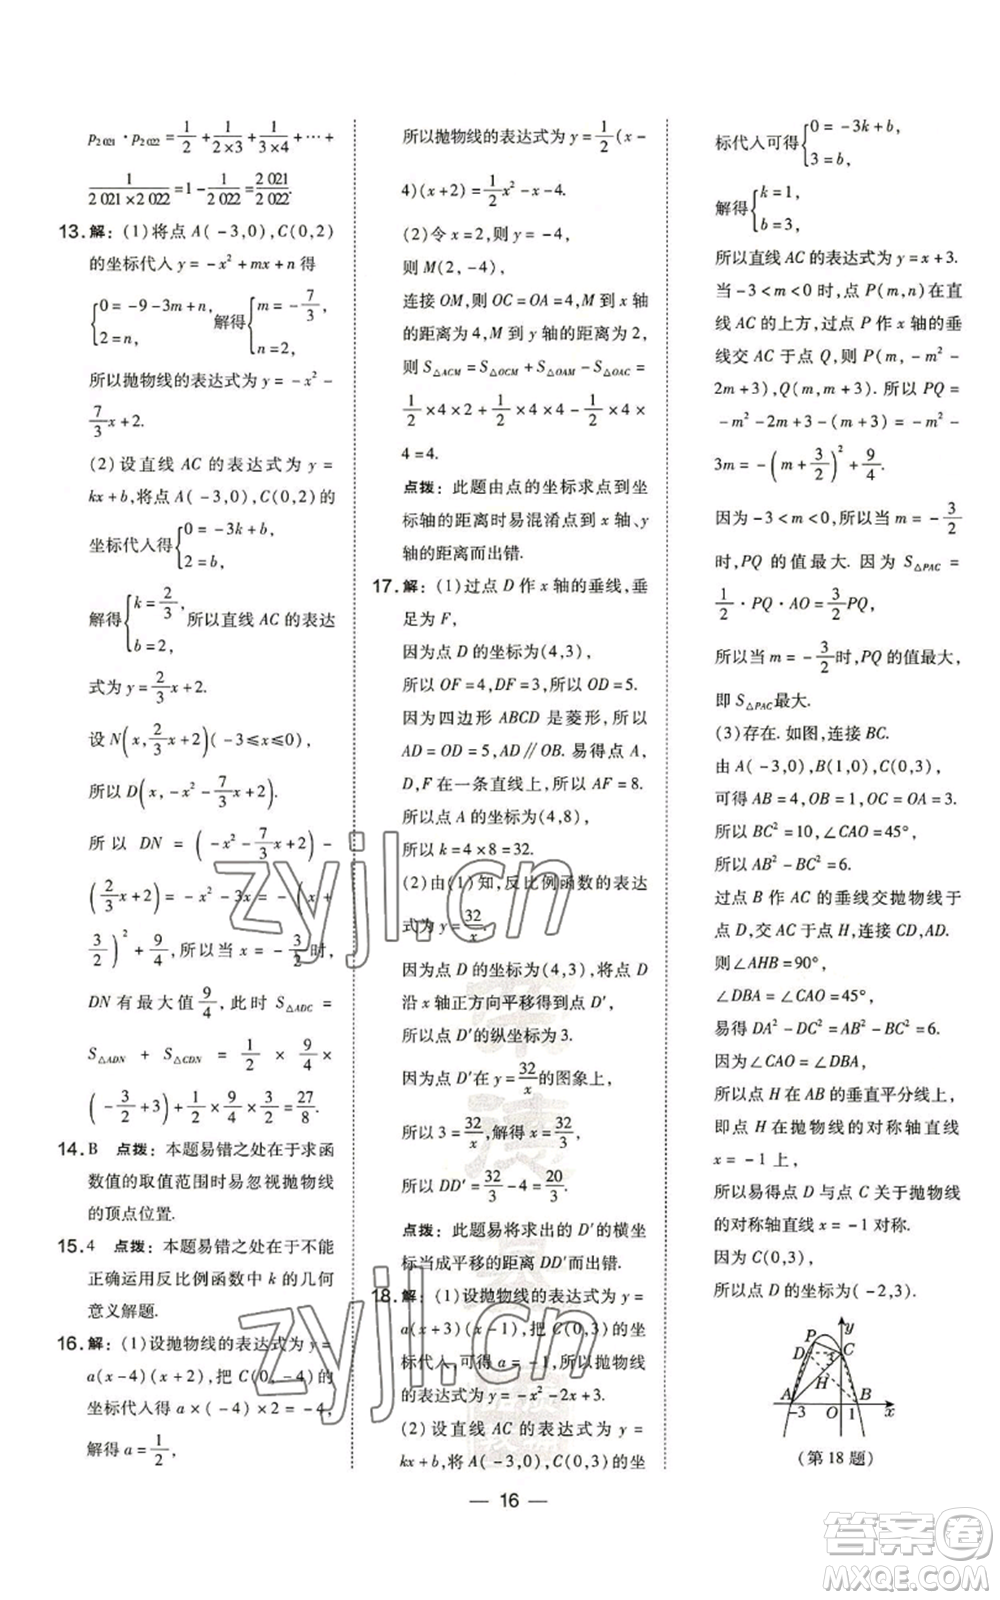 p₂₀₂₁·p₂₀₂₂=1/2+1/(2×3)+1/(3×4)+…+
1/(2 021×2 022)=1-1/2 022=2 021/2 022.
13.解:(1)将点A(-3,0),C(0,2)
的坐标代入y=-x²+mx+n得
{0=-9-3m+n, 2=n, 解得{m=-7/3, n=2,
所以抛物线的表达式为y=-x²-
7/3x+2.
(2)设直线AC的表达式为y=
kx+b,将点A(-3,0),C(0,2)的
坐标代入得{0=-3k+b, 2=b,
解得{k=2/3, b=2, 所以直线AC的表达
式为y=2/3x+2.
设N(x,2/3x+2)(-3≤x≤0),
所以D(x,-x²-7/3x+2).
所以DN=(-x²-7/3x+2)-
(2/3x+2)=-x²-3x=-(x+
3/2)²+9/4,所以当x=-3/2时,
DN有最大值9/4,此时S△ADC=
S△ADN+S△CDN=1/2×9/4×
(-3/2+3)+1/2×9/4×3/2=27/8.
14.B 点拨:本题易错之处在于求函
数值的取值范围时易忽视抛物线
的顶点位置.
15.4 点拨:本题易错之处在于不能
正确运用反比例函数中k的几何
意义解题.
16.解:(1)设抛物线的表达式为y=
a(x-4)(x+2),把C(0,-4)的
坐标代入得a×(-4)×2=-4,
解得a=1/2,
所以抛物线的表达式为y=1/2(x-
4)(x+2)=1/2x²-x-4.
(2)令x=2,则y=-4,
则M(2,-4),
连接OM,则OC=OA=4,M到x轴
的距离为4,M到y轴的距离为2,
则S△ACM=S△OCM+S△OAM-S△OAC=
1/2×4×2+1/2×4×4-1/2×4×
4=4.
点拨:此题由点的坐标求点到坐
标轴的距离时易混淆点到x轴、y
轴的距离而出错.
17.解:(1)过点D作x轴的垂线,垂
足为F,
因为点D的坐标为(4,3),
所以OF=4,DF=3,所以OD=5.
因为四边形ABCD是菱形,所以
AD=OD=5,AD∥OB.易得点A,
D,F在一条直线上,所以AF=8.
所以点A的坐标为(4,8),
所以k=4×8=32.
(2)由(1)知,反比例函数的表达
式为y=32/x.
因为点D的坐标为(4,3),将点D
沿x轴正方向平移得到点D′,
所以点D′的纵坐标为3.
因为点D′在y=32/x的图象上,
所以3=32/x,解得x=32/3,
所以DD′=32/3-4=20/3.
点拨:此题易将求出的D′的横坐
标当成平移的距离DD′而出错.
18.解:(1)设抛物线的表达式为y=
a(x+3)(x-1),把C(0,3)的坐
标代入,可得a=-1,所以抛物线
的表达式为y=-x²-2x+3.
(2)设直线AC的表达式为y=
kx+b,将A(-3,0),C(0,3)的坐
标代入可得{0=-3k+b, 3=b,
解得{k=1, b=3.
所以直线AC的表达式为y=x+3.
当-3<m<0时,点P(m,n)在直
线AC的上方,过点P作x轴的垂
线交AC于点Q,则P(m,-m²-
2m+3),Q(m,m+3).所以PQ=
-m²-2m+3-(m+3)=-m²-
3m=-(m+3/2)²+9/4.
因为-3<m<0,所以当m=-3/2
时,PQ的值最大.因为S△PAC=
1/2·PQ·AO=3/2PQ,
所以当m=-3/2时,PQ的值最大,
即S△PAC最大.
(3)存在.如图,连接BC.
由A(-3,0),B(1,0),C(0,3),
可得AB=4,OB=1,OC=OA=3.
所以BC²=10,∠CAO=45°,
所以AB²-BC²=6.
过点B作AC的垂线交抛物线于
点D,交AC于点H,连接CD,AD.
则∠AHB=90°,
∠DBA=∠CAO=45°,
易得DA²-DC²=AB²-BC²=6.
因为∠CAO=∠DBA,
所以点H在AB的垂直平分线上,
即点H在抛物线的对称轴直线
x=-1上,
所以易得点D与点C关于抛物线
的对称轴直线x=-1对称.
因为C(0,3),
所以点D的坐标为(-2,3).
P y
D C
H
A B
-3 O 1 x
(第18题)
— 16 —
zyjl.cn
zyjl.cn
答案卷
MXQE.COM